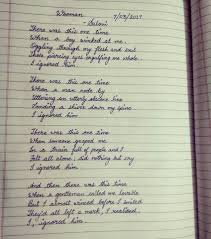 Woman 7/03/2017
- Saloni
There was this one time
When a boy winked at me.
Ogling through my flesh and soul
Those piercing eyes engulfing me whole
I ignored him
There was this one time
When a man rode by
Uttering an utterly obscene line
Sending a shiver down my spine
I ignored him
There was this one time
When someone groped me
In a train full of people and I
Felt all alone; did nothing but cry
I ignored him
And then there was this time
When a gentleman called me lovable
But I almost winced before I smiled
They'd all left a mark, I realised.
I, ignored him